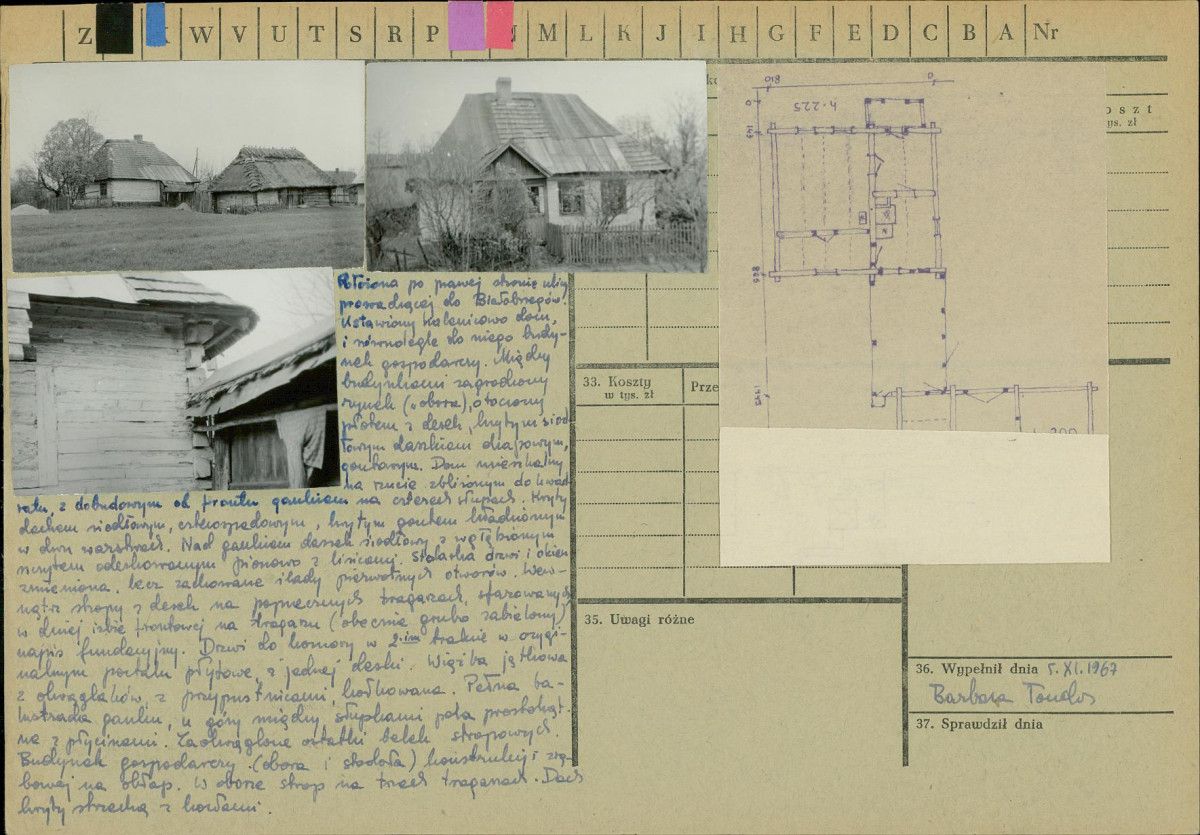 Z W V U T S R P M L K J I H G F E D C B A Nr
o s z t
ys. zł
810 0
h-225
0
143
865
1445
200
Położona po prawej stronie ulicy
prowadzącej do Białobrzegów.
Ustawiony kalenicowo dom,
i równolegle do niego budy-
nek gospodarczy. Między
budynkami zagrodowy
rynek („obora”), otoczony
płotem z desek, krytym siod-
łowym daszkiem dwuspadowym,
gontowym. Dom mieszkalny
na rzucie zbliżonym do kwad-
ratu, z dobudowanym od frontu gankiem na czterech słupach. Kryty
dachem siodłowym, czterospadowym, krytym gontem kładzionym
w dwu warstwach. Nad gankiem daszek siodłowy z wgłębionym
szczytem odeskowanym pionowo z listwami. Stolarka drzwi i okien
zmieniona, lecz zachowane ślady pierwotnych otworów. Wew-
nątrz stropy z desek na poprzecznych tragarzach, sfazowanych
w dużej izbie frontowej na tragarzu (obecnie grubo zabielony)
napis fundacyjny. Drzwi do komory w 2-im trakcie w orygi-
nalnym portalu płytowe, z jednej deski. Więźba jętkowa
z okrąglaków, z przypustnicami, kołkowana. Pełna ba-
lustrada ganku, u góry między słupkami pola prostokąt-
ne z płycinami. Zaokrąglone ostatki belek stropowych.
Budynek gospodarczy (obora i stodoła) konstrukcji zrę-
bowej na obłap. W oborze strop na trzech tragarzach. Dach
kryty strzechą z kozłami.
33. Koszty
w tys. zł
Prze
35. Uwagi różne
36. Wypełnił dnia 5.XI.1967
Barbara Tondos
37. Sprawdził dnia